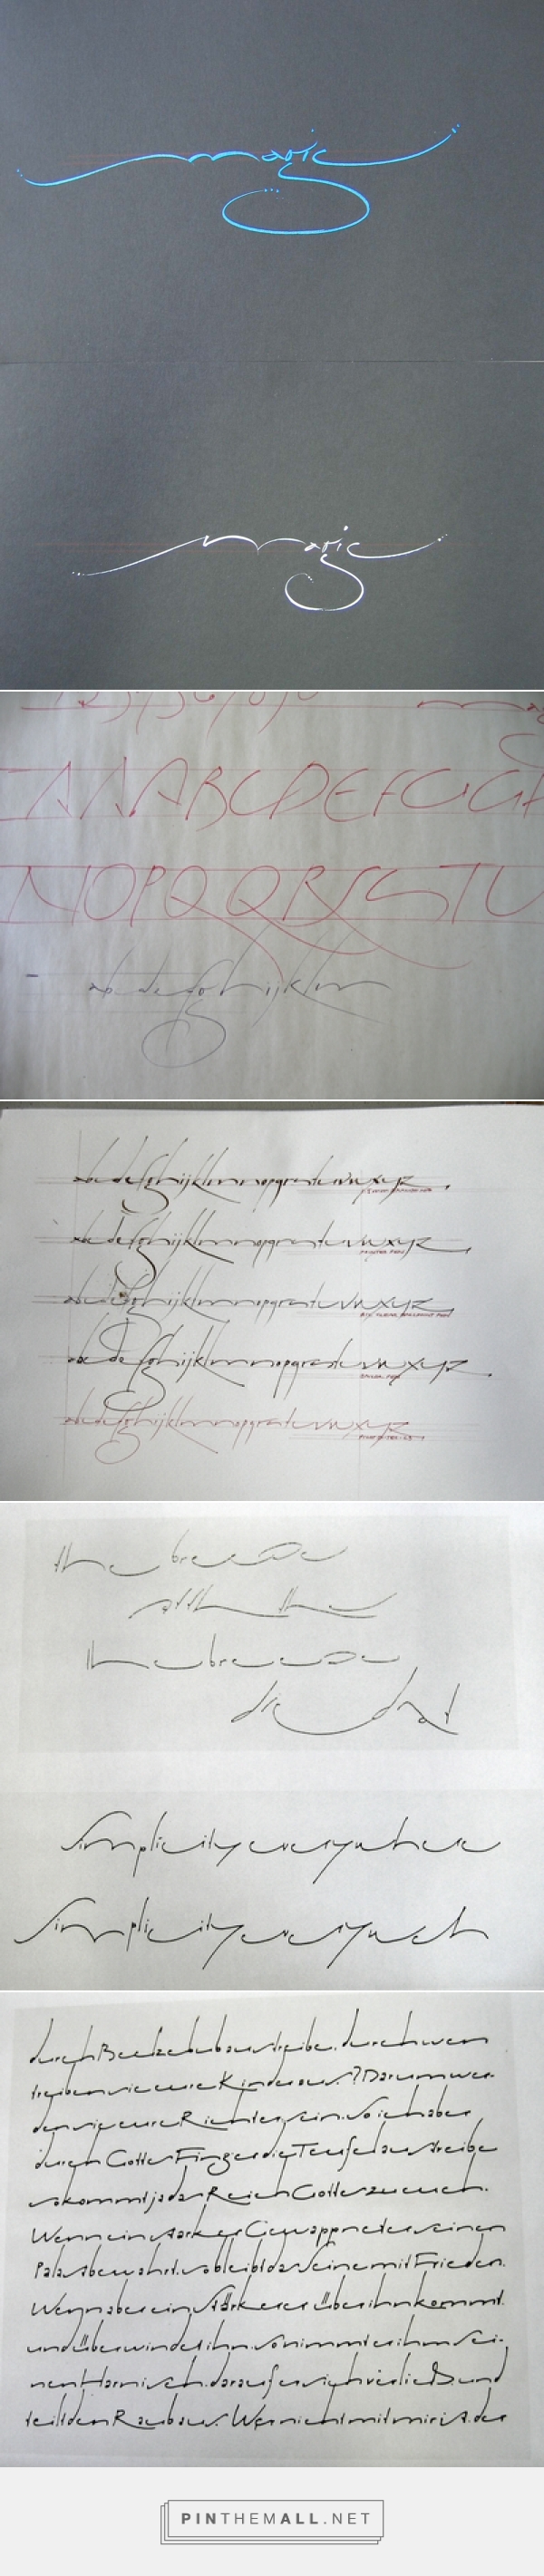 magic
magic
A A A B C D E F G G H
N O P Q Q R S S T U
abcdefghijklm
abcdefghijklmnopqrstuvwxyz
abcdefghijklmnopqrstuvwxyz
POINTED PEN
abcdefghijklmnopqrstuvwxyz
abcdefghijklmnopqrstuvwxyz
abcdefghijklmnopqrstuvwxyz
the breeze
the breeze
simplicity everywhere
simplicity everywh
durch Beelzebub austreibe. durch wem
treiben sie eure Kinder aus? Darum wer-
den sie eure Richter sein. So ich aber
durch Gottes Finger die Teufel austreibe
so kommt ja das Reich Gottes zu euch.
Wenn ein starker Gewappneter seinen
Palast bewahrt. so bleibt das Seine mit Frieden.
Wenn aber ein Stärkerer über ihn kommt
und überwindet ihn. so nimmt er ihm sei-
nen Harnisch. darauf er sich verließ. und
teilt den Raub aus. Wer nicht mit mir ist. der
PINTHEMALL.NET